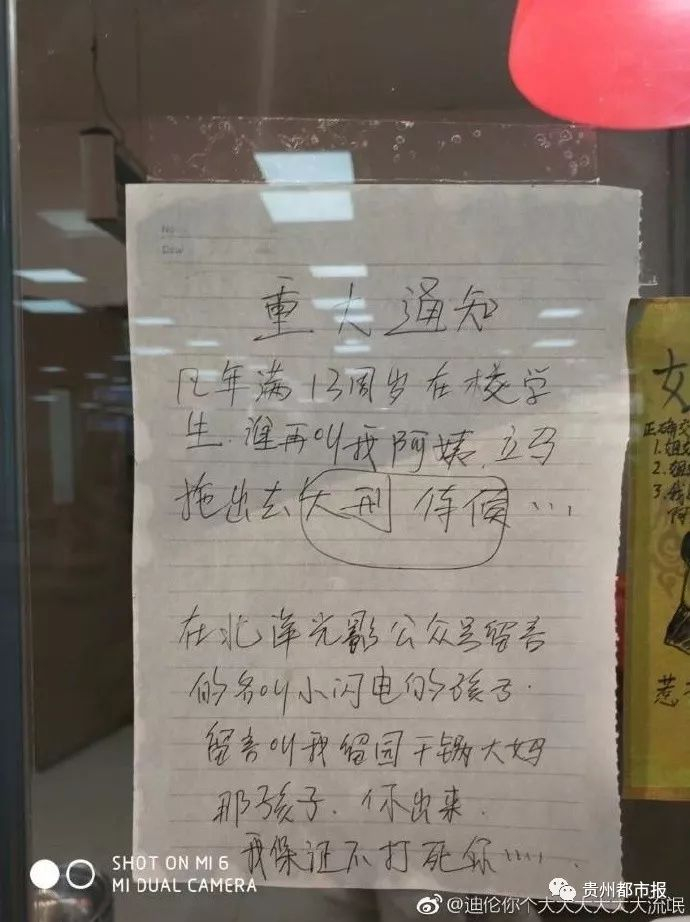 No
重大通知
凡年满13周岁在校学
生.谁再叫我阿姨.立马
拖出去大刑伺候…
在北洋光影公众号留言
的名叫小闪电的孩子.
留言叫我留园干锅大妈
那孩子.你出来.
我保证不打死你……
女
正确交
1.姐
2.姐
3.我
阿
惹
SHOT ON MI 6
MI DUAL CAMERA
贵州都市报
@迪伦你个大大大大大大流氓